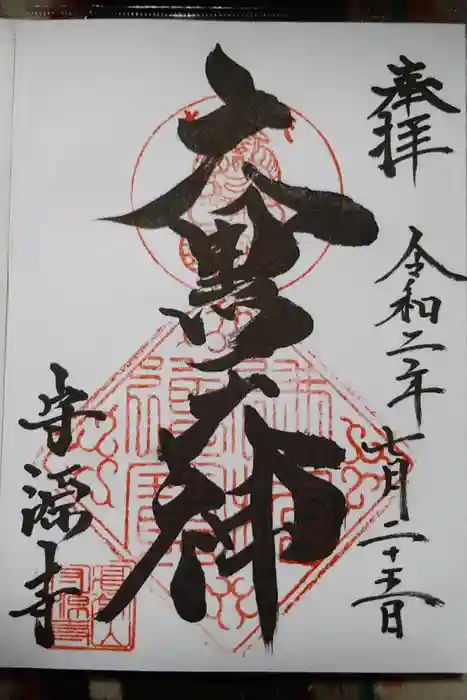 奉拝
令和二年七月二十五日
大黒大神
守源寺